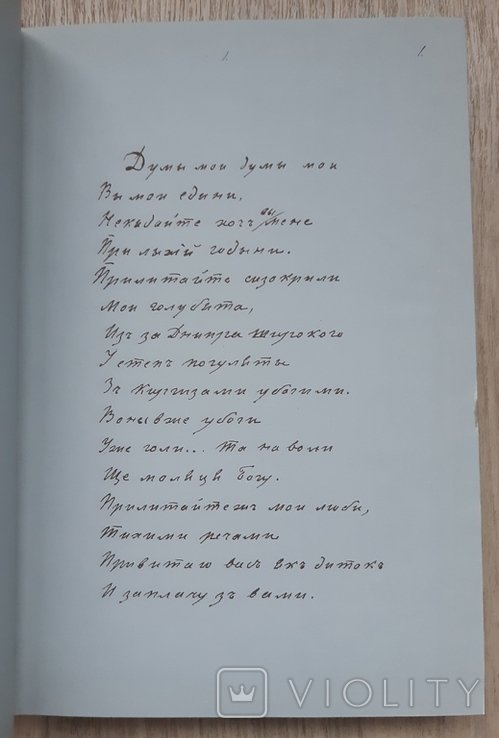 1. 1.
Думы мои думы мои
Вы мои едыни,
Некыдайте хочъ вы мене
При лыхій годыни.
Прилитайте сизокрыли
Мои голубята,
Изъ за Днипра широкого
У степъ погуляты
Зъ Киргизами убогими.
Воны вже убоги
Уже голи... Та на воли
Ще моляця Богу.
Прилитайтежъ мои люби,
Тихими речами
Привитаю васъ якъ дитокъ
И заплачу зъ вами.
VIOLITY